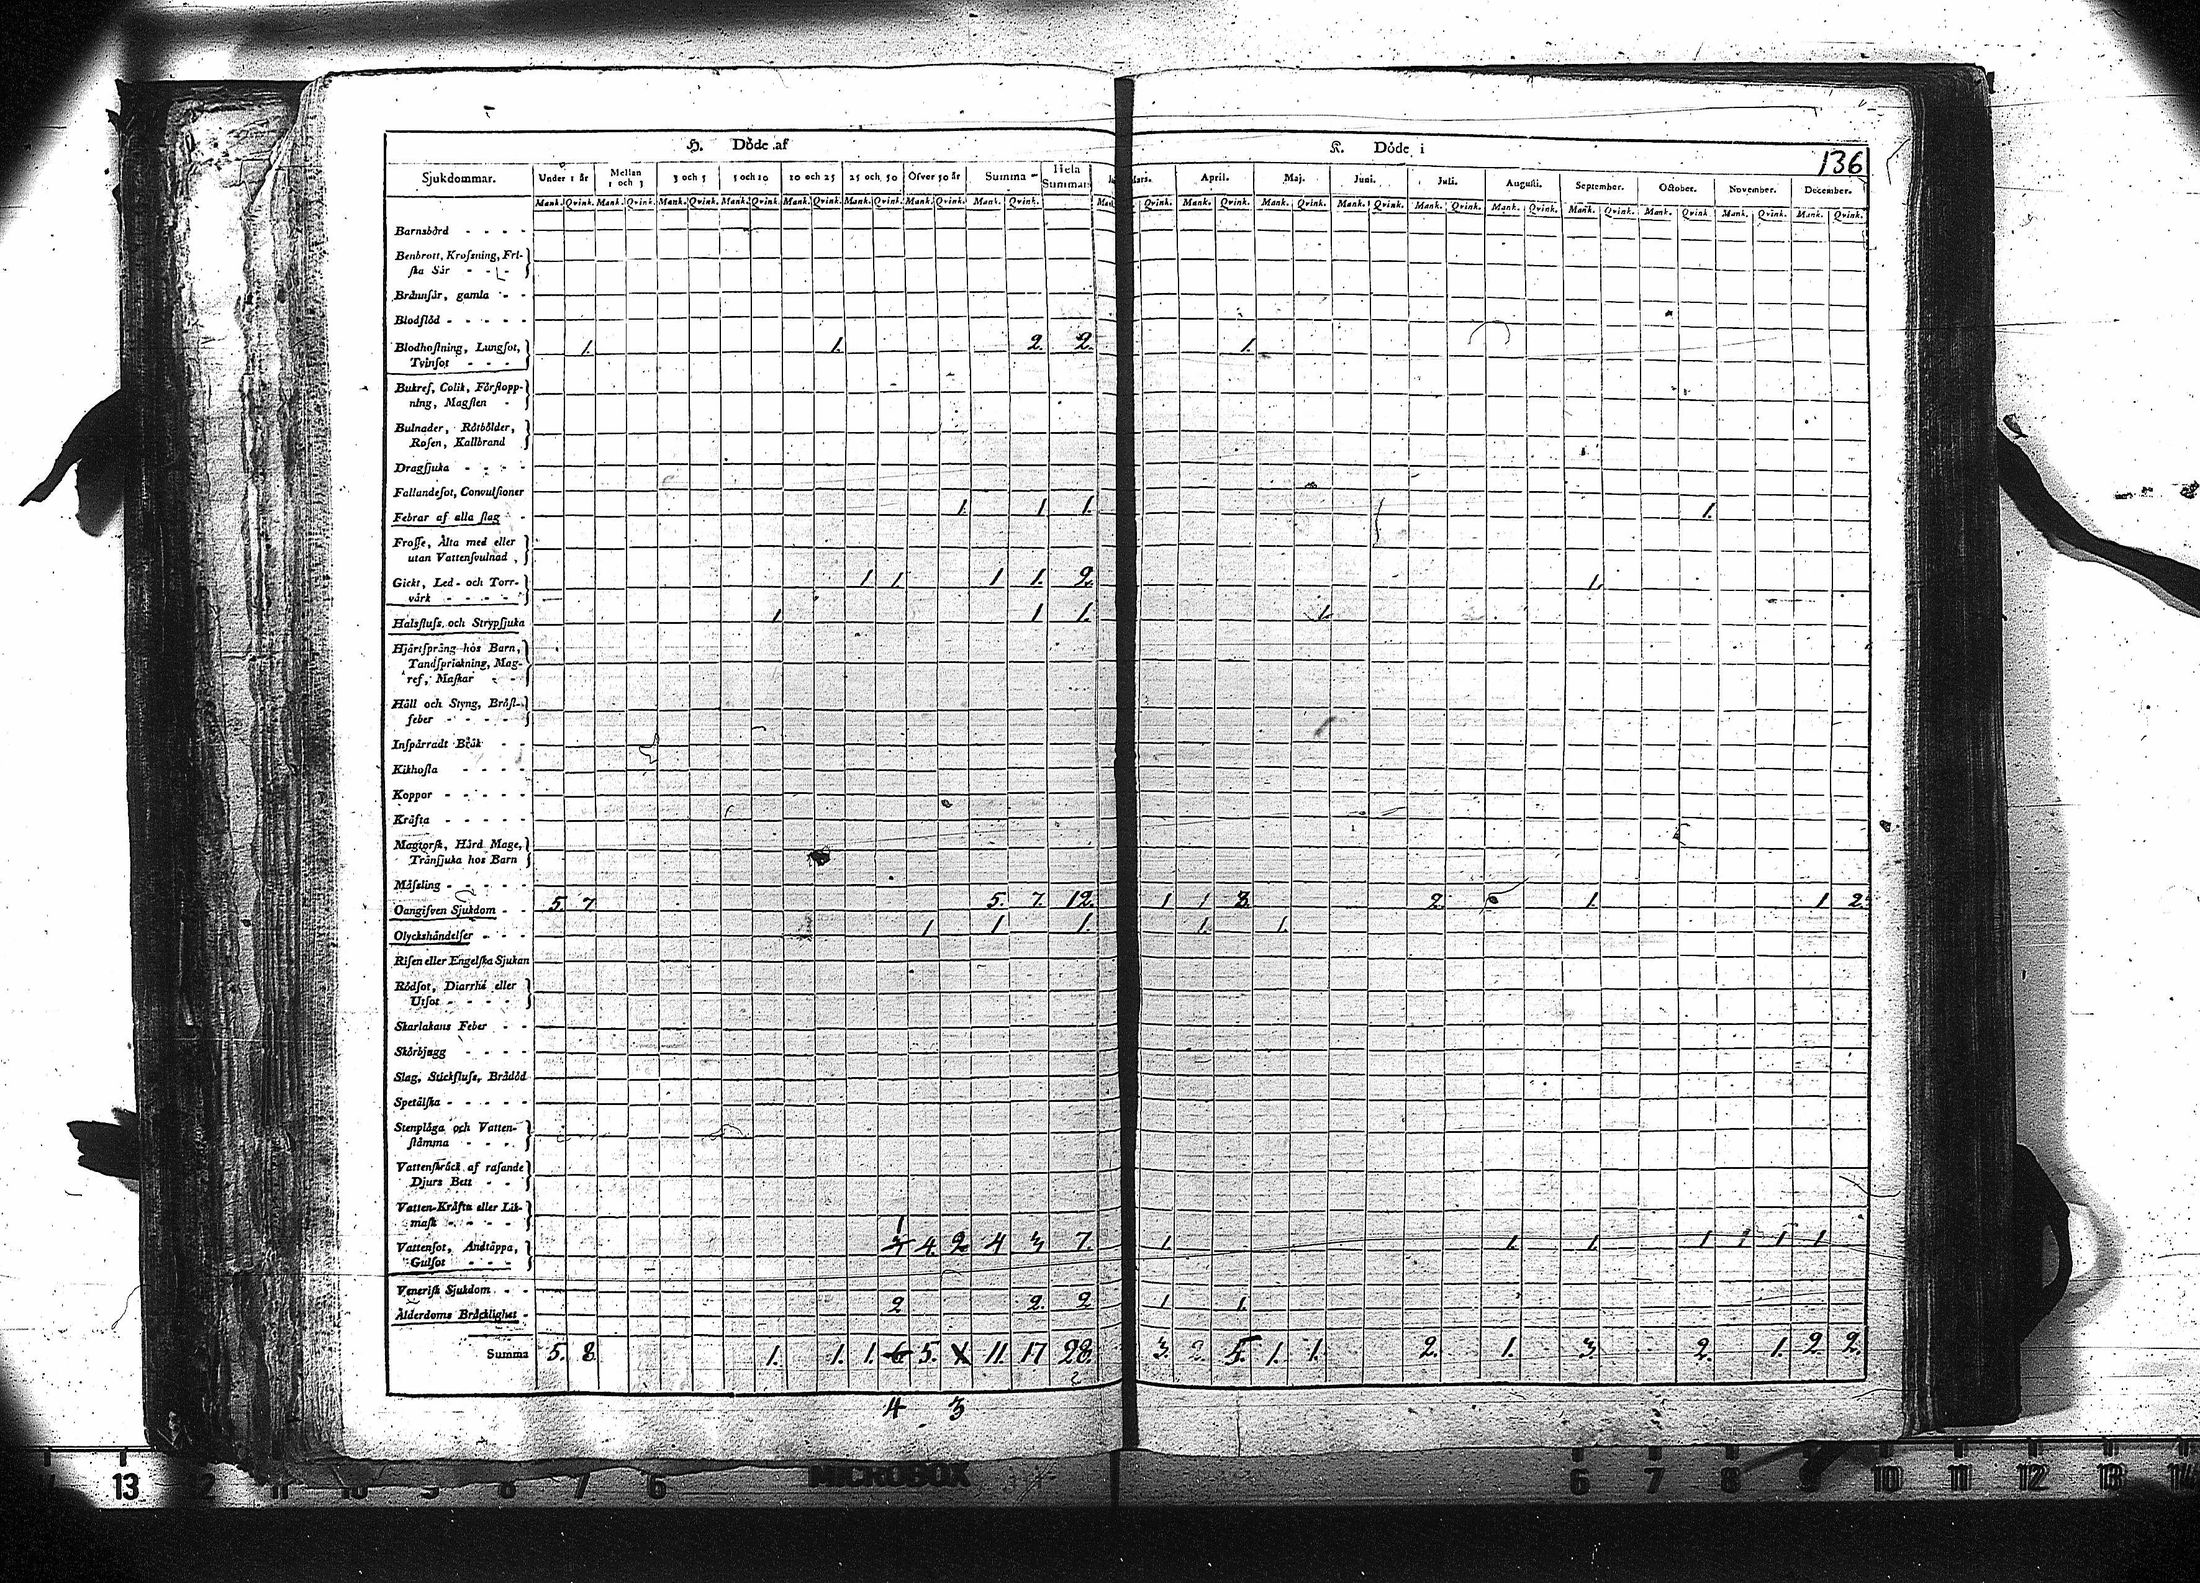 H. Döde af
K. Döde i
136
Sjukdommar. Under 1 år Mellan 1 och 3 3 och 5 5 och 10 10 och 25 25 och 50 Öfver 50 år Summa Hela Summan
Mars. April. Maj. Juni. Juli. Augusti. September. October. November. December.
Mank. Qvink. Mank. Qvink. Mank. Qvink. Mank. Qvink. Mank. Qvink. Mank. Qvink. Mank. Qvink. Mank. Qvink.
Mank. Qvink. Mank. Qvink. Mank. Qvink. Mank. Qvink. Mank. Qvink. Mank. Qvink. Mank. Qvink. Mank. Qvink. Mank. Qvink. Mank. Qvink.
Barnsbörd - - - -
Benbrott, Krosſning, Fri-
ſka Sår - - -
Brännſår, gamla - -
Blodflöd - - - - -
Blodhoſtning, Lungſot, 1. 1. 2. 2. 1.
Tvinſot - - -
Bukref, Colik, Förſtopp-
ning, Magſten -
Bulnader, Rötbölder,
Roſen, Kallbrand
Dragſjuka - - - -
Fallandeſot, Convulſioner
Febrar af alla ſlag - 1. 1 1. 1.
Froſſe, Älta med eller
utan Vattenſvulnad,
Gickt, Led- och Torr- 1 1. 1 1. 2. 1.
värk - - - - -
Halsfluſs och Strypſjuka 1 1 1. 1.
Hjärtſprång hos Barn,
Tandſprickning, Mag-
ref, Maſkar - -
Håll och Styng, Bröſt-
feber - - - -
Inſpärradt Bråk - -
Kikhoſta - - - -
Koppor - - - - -
Kräfta - - - - -
Magtorſk, Hård Mage,
Tränſjuka hos Barn
Måſsling - - - - -
Oangifven Sjukdom - - 5. 7. 5. 7. 12. 1 1 3. 2. 1. 1 2.
Olyckshändelſer - - - 1 1 1. 1. 1.
Riſen eller Engelſka Sjukan
Rödſot, Diarrhé eller
Utſot - - - -
Skarlakans Feber - -
Skörbjugg - - - -
Slag, Stickfluſs, Brådöd
Spetälſka - - - - -
Stenplåga och Vatten-
ſtämma - - -
Vattenſkräck af raſande
Djurs Bett - -
Vatten-Kräfta eller Lik-
maſk - - - - 1
Vattenſot, Andtäppa, 3 4. 2 4 3 7. 1. 1. 1. 1 1 1 1
Gulſot - - -
Veneriſk Sjukdom - -
Ålderdoms Bräcklighet - 2 2. 2 1 1.
Summa 5. 8. 1. 1. 1. 6. 5. 1. 11. 17 28. 3. 2. 5. 1. 1. 2. 1. 3. 2. 1. 2. 2.
4 3
MICROBOX
13 12 11 10 9 8 7 6
6 7 8 9 10 11 12 13 14